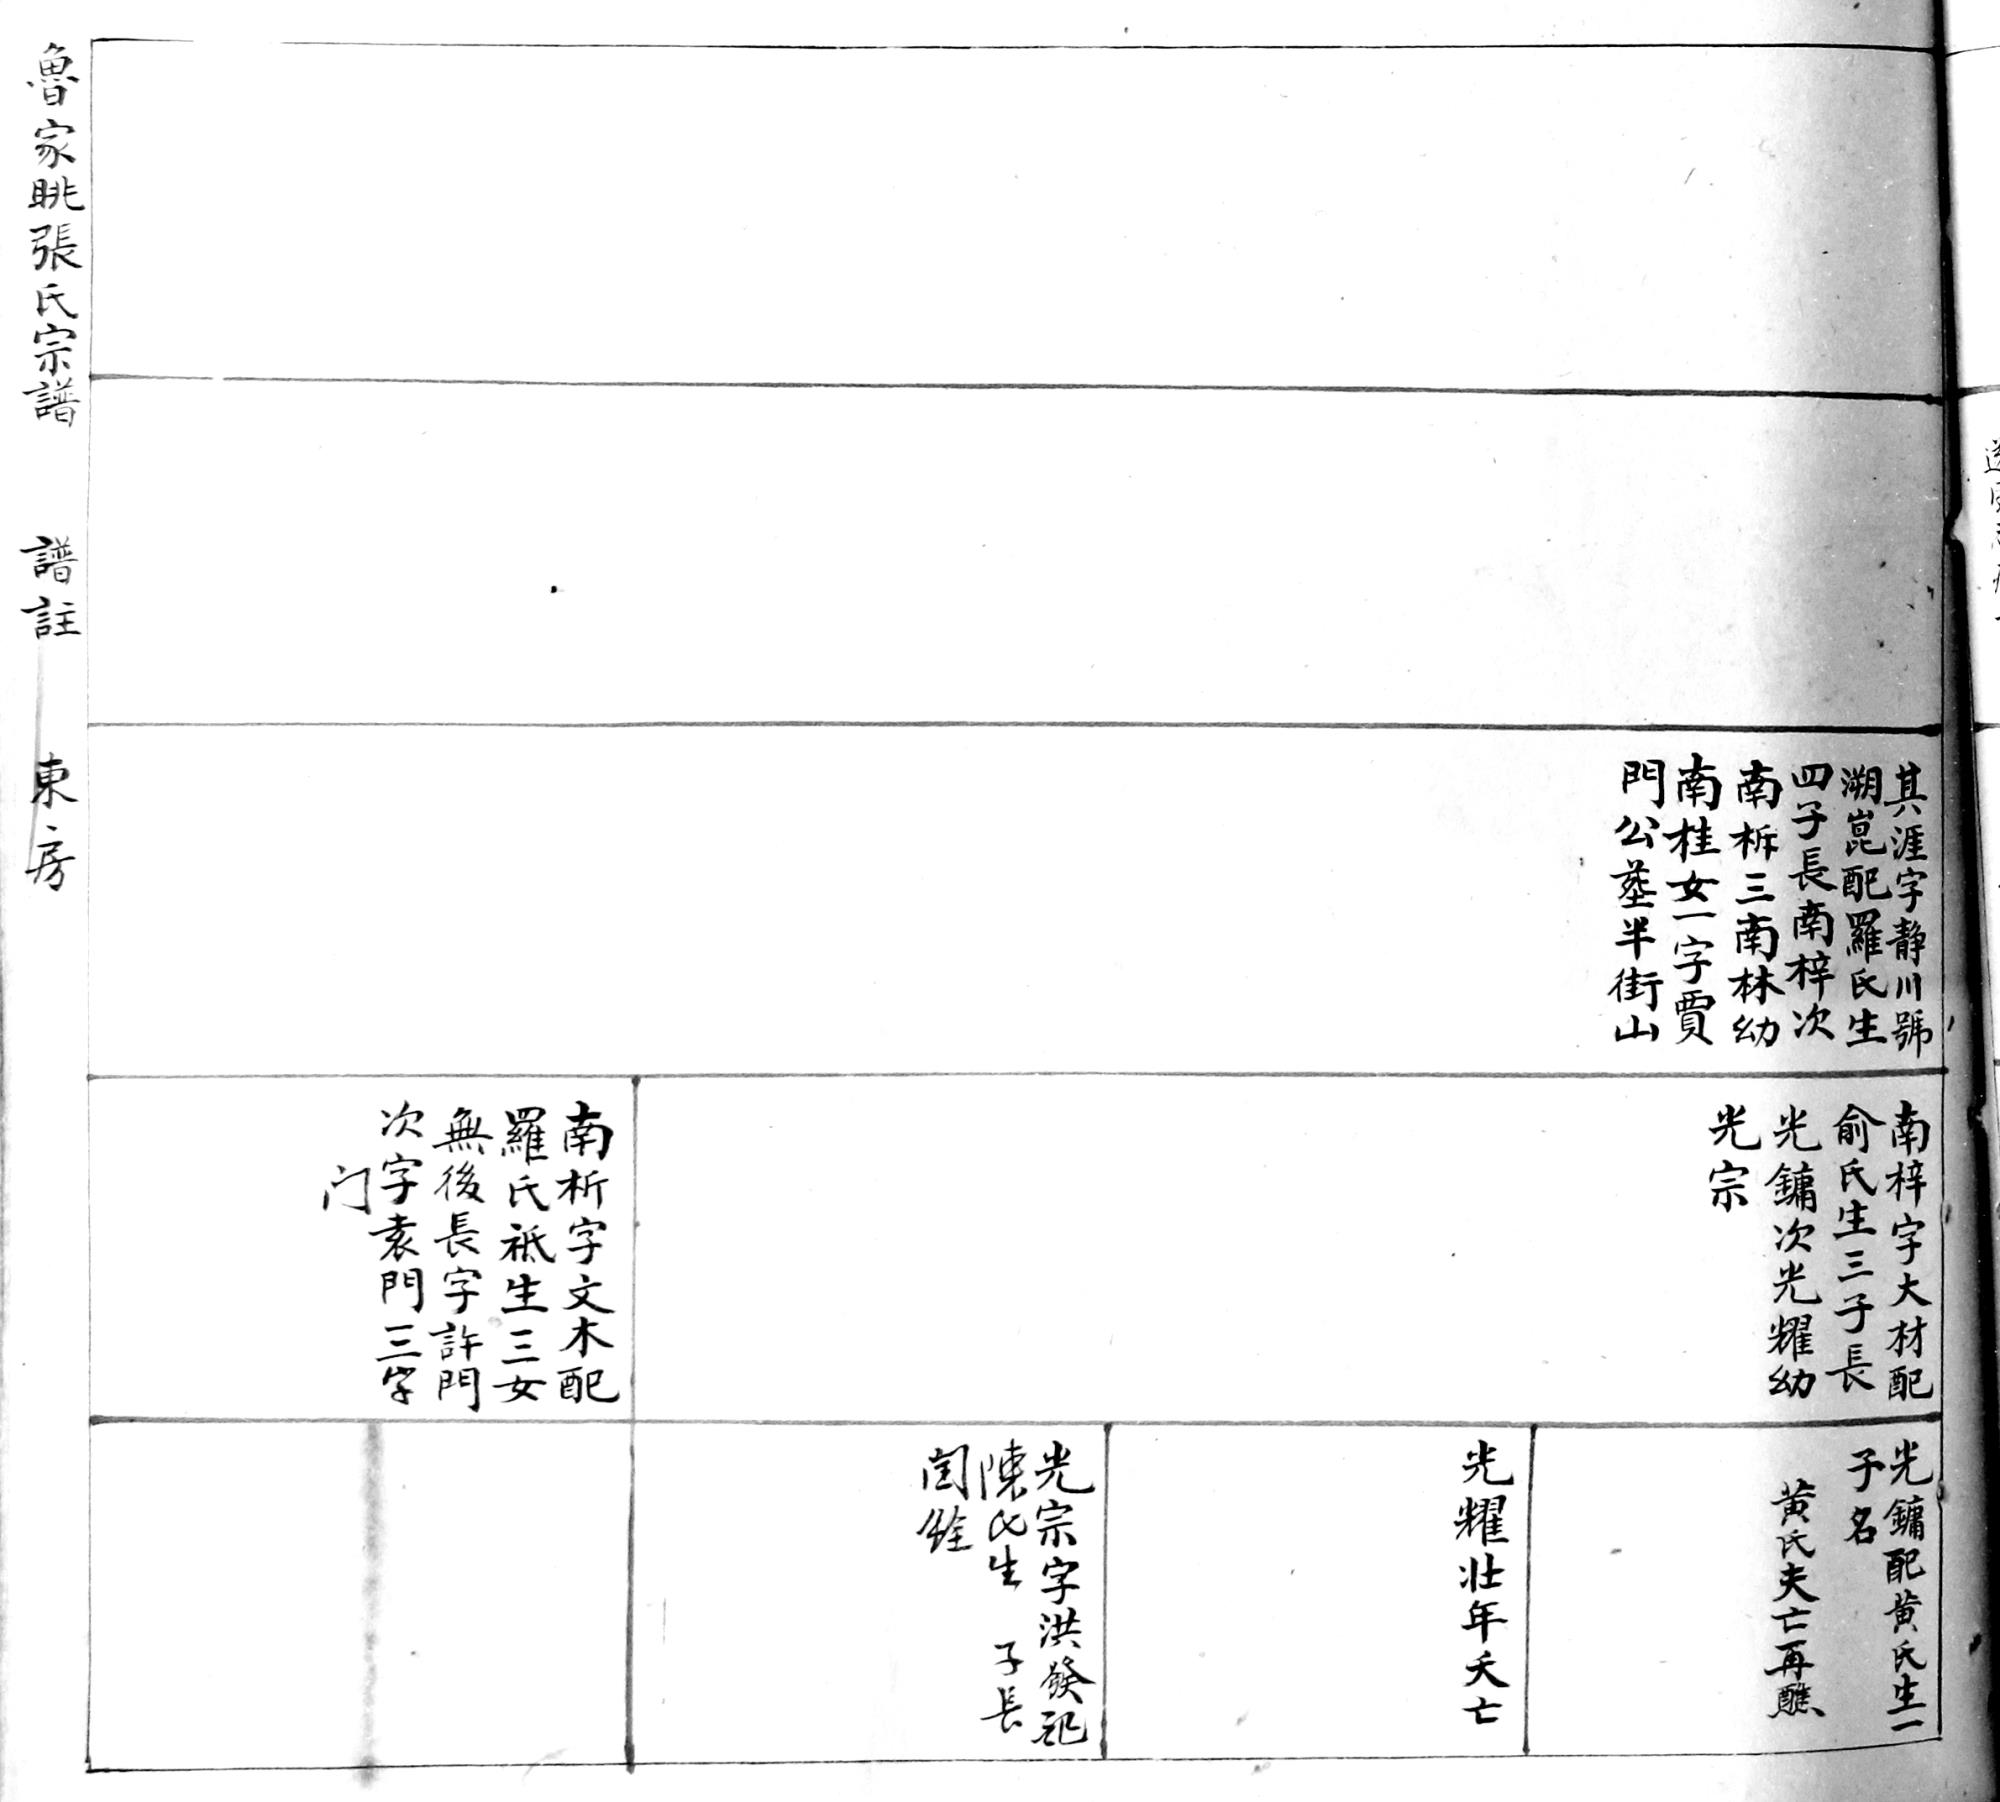 其涯字靜川號
溯崑配羅氏生
四子長南梓次
南析三南林幼
南桂女一字賈
門公塟半街山
南梓字大材配
俞氏生三子長
光鏞次光耀幼
光宗
南析字文木配
羅氏祗生三女
無後長字許門
次字袁門三字
门
光鏞配黄氏生一
子名
黄氏夫亡再醮
光耀壯年夭亡
光宗字洪發配
陳氏生 子長
閏銓
魯家眺張氏宗譜 譜註 東房